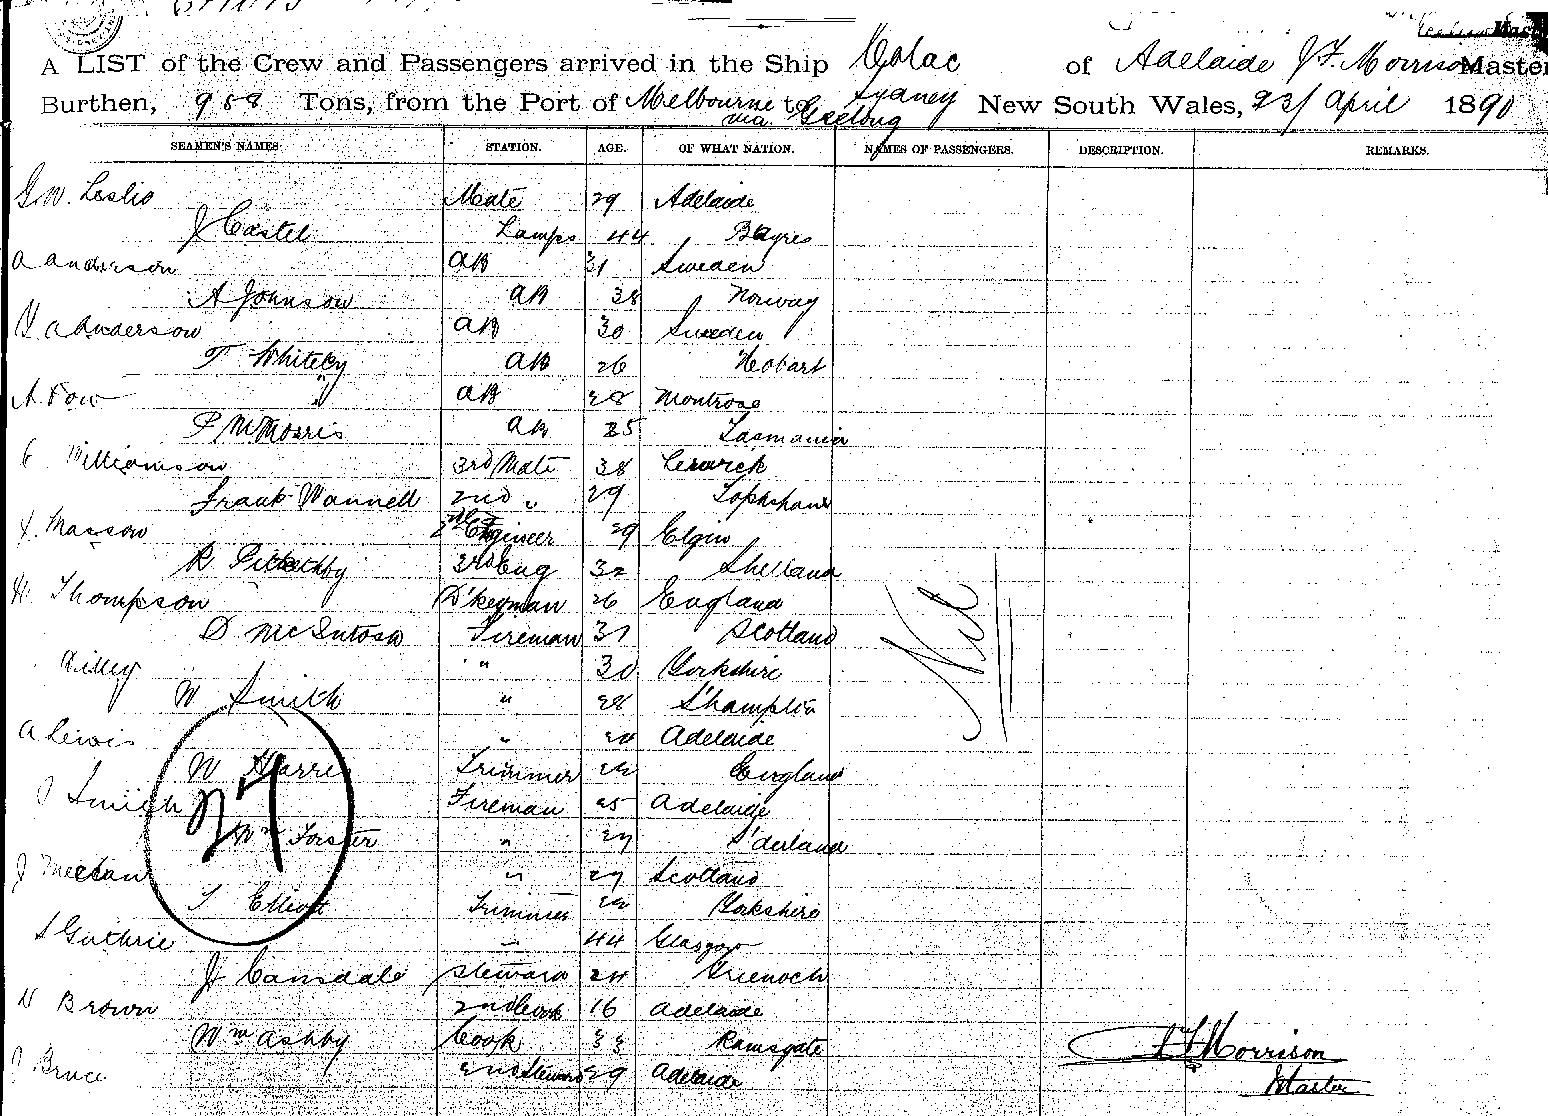 A LIST of the Crew and Passengers arrived in the Ship Colac of Adelaide J F Morrison Master
Burthen, 988 Tons, from the Port of Melbourne to Sydney New South Wales, 23/ April 1890
via Geelong
SEAMEN'S NAMES. STATION. AGE. OF WHAT NATION. NAMES OF PASSENGERS. DESCRIPTION. REMARKS.
G W. Leslie Mate 29 Adelaide
J Castel Lamps 44 B Ayres
A Anderson AB 31 Sweden
A Johnson AB 38 Norway
A Anderson AB 30 Sweden
T Whiteby AB 26 Hobart
A AB 28 Montrose
P Morris AB Tasmania
Williamson 3rd Mate 38 Lerwick
Frank Wannell 2nd " 29
Masson Engineer 29 Elgin
R 3rd Eng 32 Shetland
H Thompson D'keyman 26 England
D McIntosh Fireman 31 Scotland
" 30 Yorkshire
W Smith " 28 S'hampton
A Lewis " Adelaide
W Harris Trimmer England
J Smith Fireman 25 Adelaide
Wm Forster " 27 S'derland
J " 27 Scotland
T Elliott Trimmer Yorkshire
S Guthrie " 44 Glasgow
J Cansdale Steward 24 Greenock
Brown 2nd Cook 16 Adelaide
Wm Ashby Cook 33 Ramsgate
J Bruce 2nd Steward 29 Adelaide
27
Nil
J F Morrison
Master